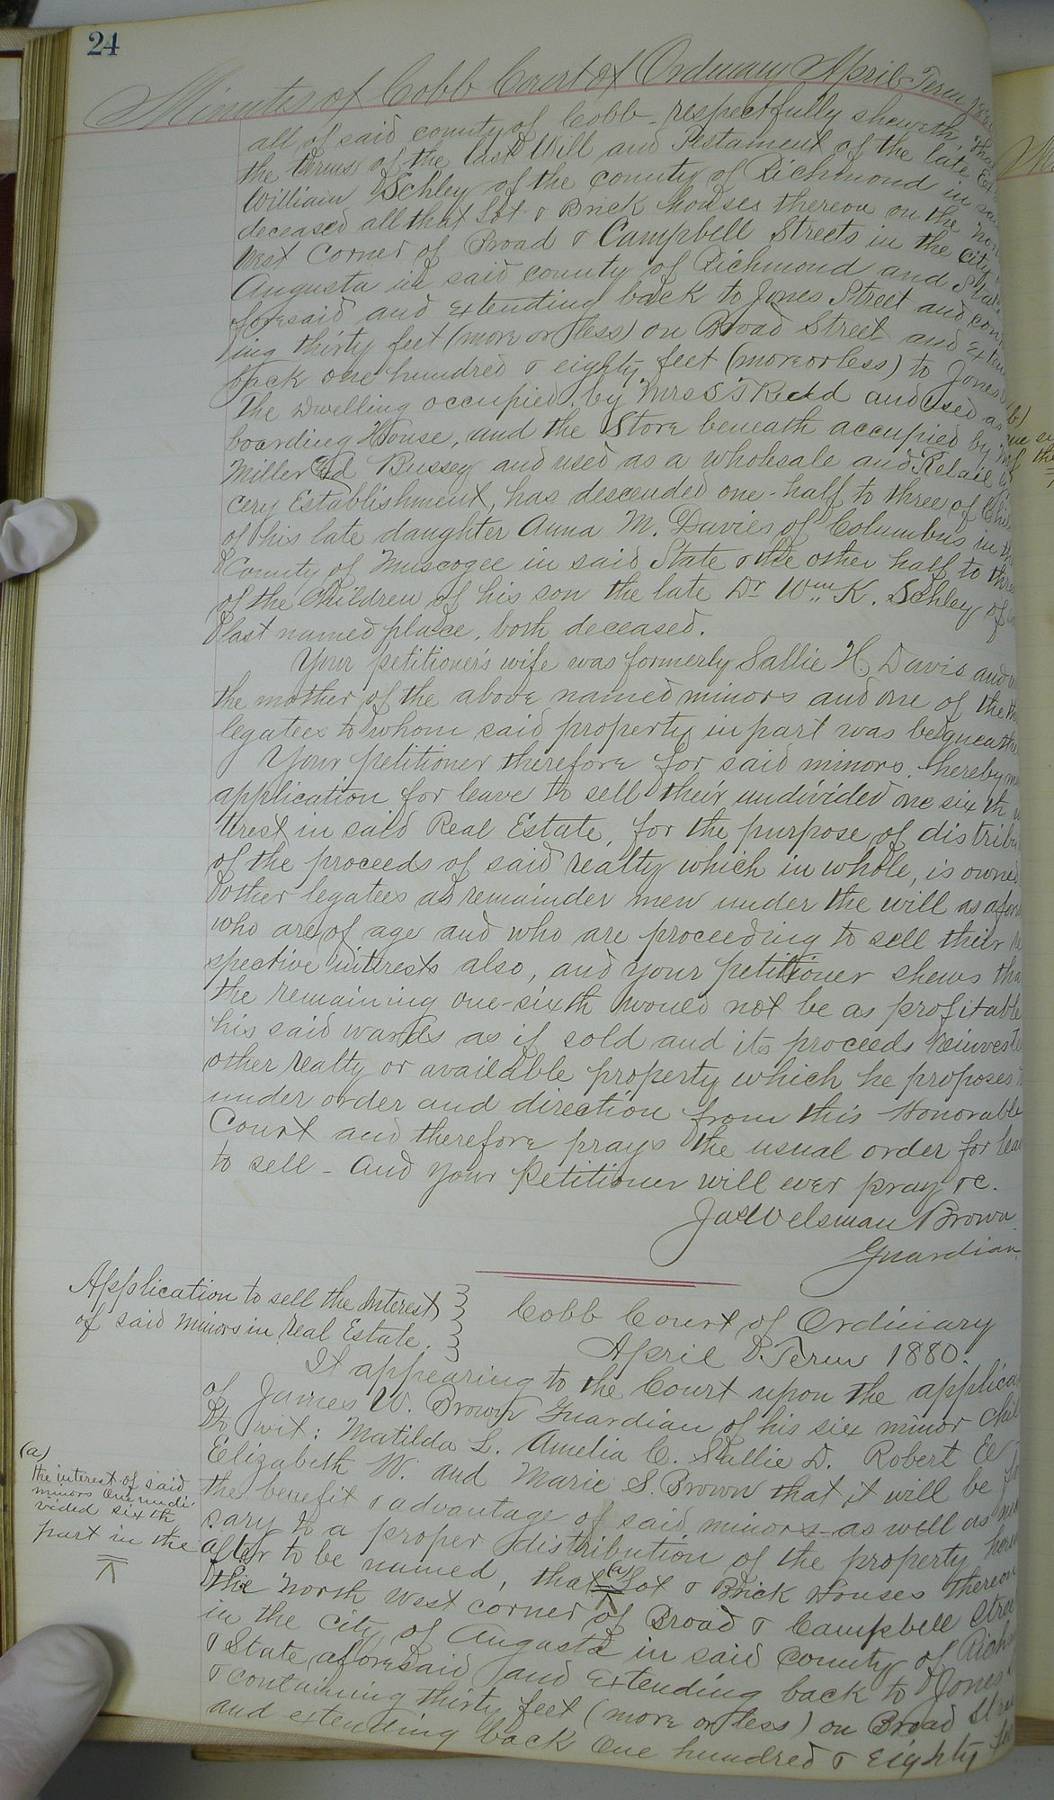 24
Minutes of Cobb Court of Ordinary April Term
all of said county of Cobb - respectfully sheweth that
the terms of the last Will and Testament of the late
William Schley of the county of Richmond in
deceased all that Lot & Brick houses thereon on the
West Corner of Broad & Campbell Streets in the City
Augusta in said county of Richmond and
foresaid and extending back to Jones Street and con
ing thirty feet (more or less) on Broad Street and
back one hundred & eighty feet (more or less) to Jones
The Dwelling occupied by Mrs S T Redd and used as
boarding House, and the Store beneath occupied by
Miller and Bussey and used as a wholesale and Retail
cery Establishment, has descended one-half to three of
of his late daughter Anna M. Davies of Columbus in
County of Muscogee in said State & the other half to three
of the Children of his son the late Dr Wm K. Schley of
last named place, both deceased.
Your petitioner's wife was formerly Sallie H. Davis and
the mother of the above named minors and one of the
legatees to whom said property in part was
Your petitioner therefore for said minors hereby
application for leave to sell their undivided one sixth
terest in said Real Estate, for the purpose of
of the proceeds of said realty which in whole, is owned
other legatees as remainder men under the will as
who are of age and who are proceeding to sell their
spective interests also, and your petitioner shews
the remaining one-sixth would not be as profitable
his said wards as if sold and its proceeds
other realty or available property which he proposes
under order and direction from this Honorable
Court and therefore prays the usual order for
to sell - and your Petitioner will ever pray &c.
Jas Welsman Brown
Guardian
Application to sell the Interest
of said Minors in Real Estate.
Cobb Court of Ordinary
April Term 1880.
It appearing to the Court upon the
of James W. Brown Guardian of his six minor
To wit: Matilda L. Amelia C. Sallie D. Robert E
Elizabeth W. and Marie S. Brown that it will be
the benefit & advantage of said minors as well as
sary to a proper distribution of the property
after to be named, that (a) Lot & Brick Houses thereon
the North West corner of Broad & Campbell
in the City of Augusta in said County of
& State aforesaid and extending back to Jones
& containing thirty feet (more or less) on Broad
and extending back One hundred & Eighty
(a)
the interest of said
minors one undi
vided sixth
part in the